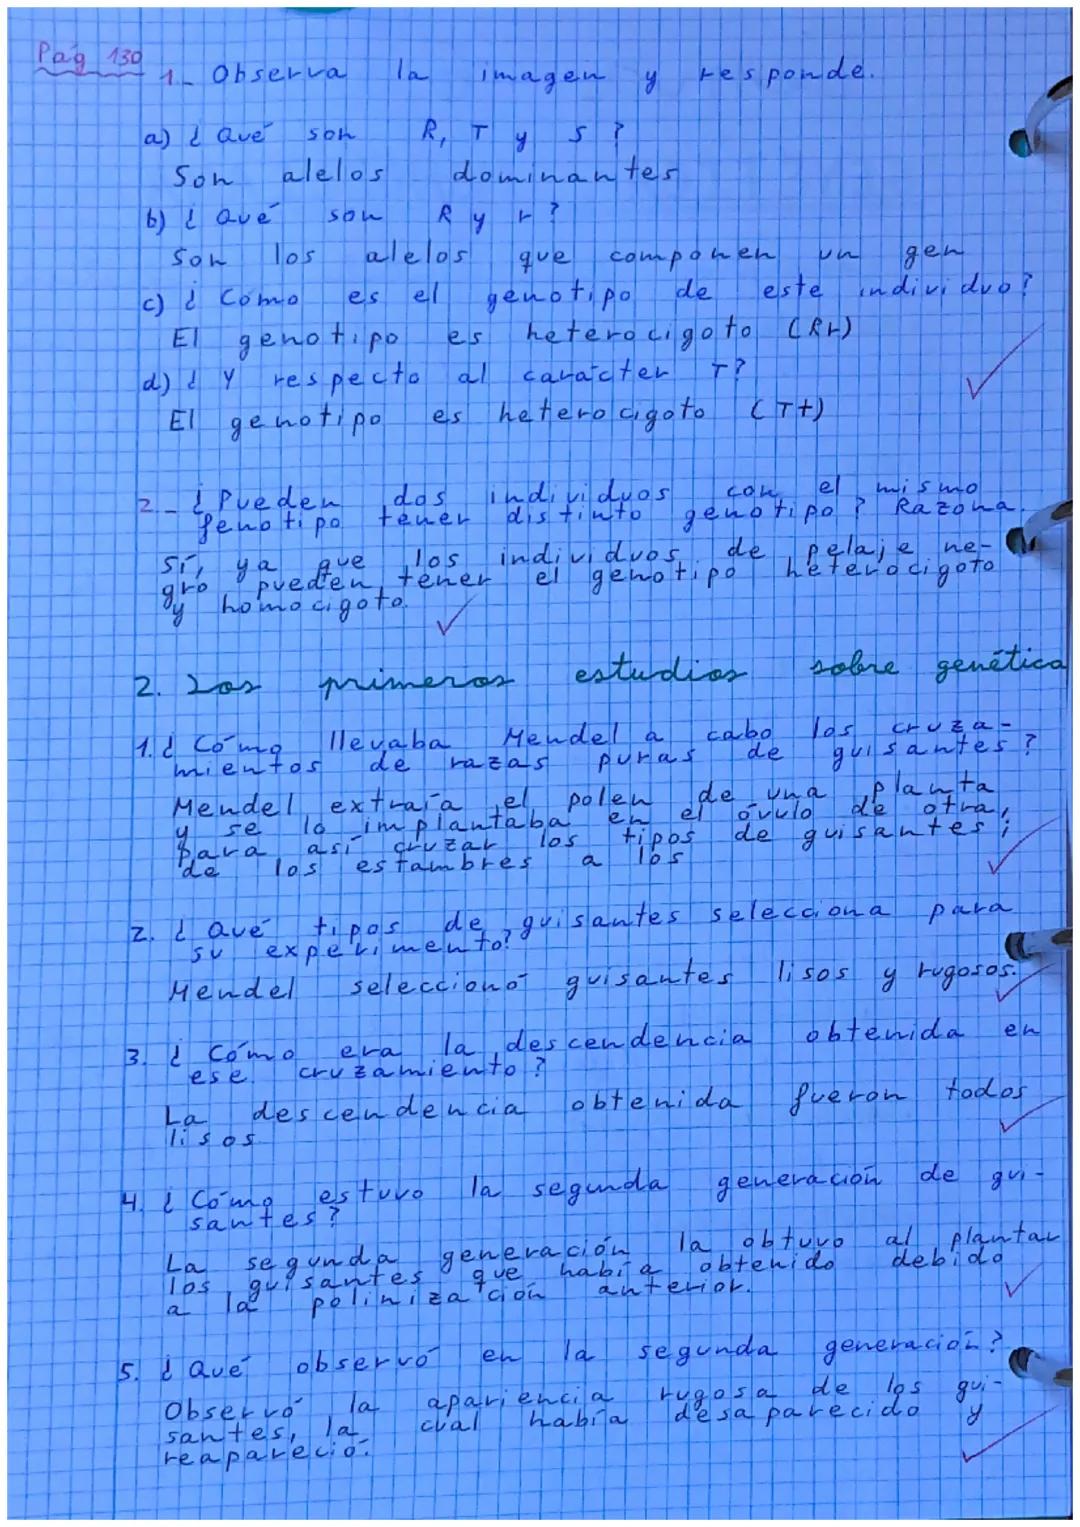 Pág 130
1.- Observa la imagen y responde.
a) ¿Qué son R, T y S?
Son alelos dominantes
b) ¿Qué son R y r?
Son los alelos que componen un gen
c) ¿Cómo es el genotipo de este individuo?
El genotipo es heterocigoto (Rr)
d) ¿Y respecto al carácter T?
El genotipo es heterocigoto (Tt)
2.- ¿Pueden dos individuos con el mismo
fenotipo tener distinto genotipo? Razona.
Sí, ya que los individuos de pelaje ne-
gro pueden tener el genotipo heterocigoto
y homocigoto.
2. Los primeros estudios sobre genética
1. ¿Cómo llevaba Mendel a cabo los cruza-
mientos de razas puras de guisantes?
Mendel extraía el polen de una planta
y se lo implantaba en el óvulo de otra,
para así cruzar los tipos de guisantes;
de los estambres a los
2. ¿Qué tipos de guisantes selecciona para
su experimento?
Mendel seleccionó guisantes lisos y rugosos.
3. ¿Cómo era la descendencia obtenida en
ese cruzamiento?
La descendencia obtenida fueron todos
lisos
4. ¿Cómo estuvo la segunda generación de gui-
santes?
La segunda generación la obtuvo al plantar
los guisantes que había obtenido debido
a la polinización anterior.
5. ¿Qué observó en la segunda generación?
Observó la apariencia rugosa de los gui-
santes, la cual había desaparecido y
reapareció.